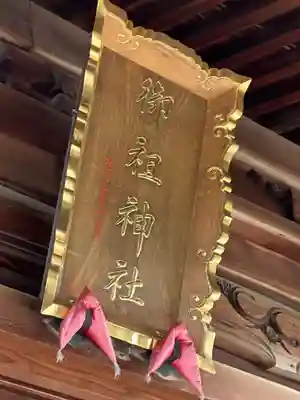 御祖神社